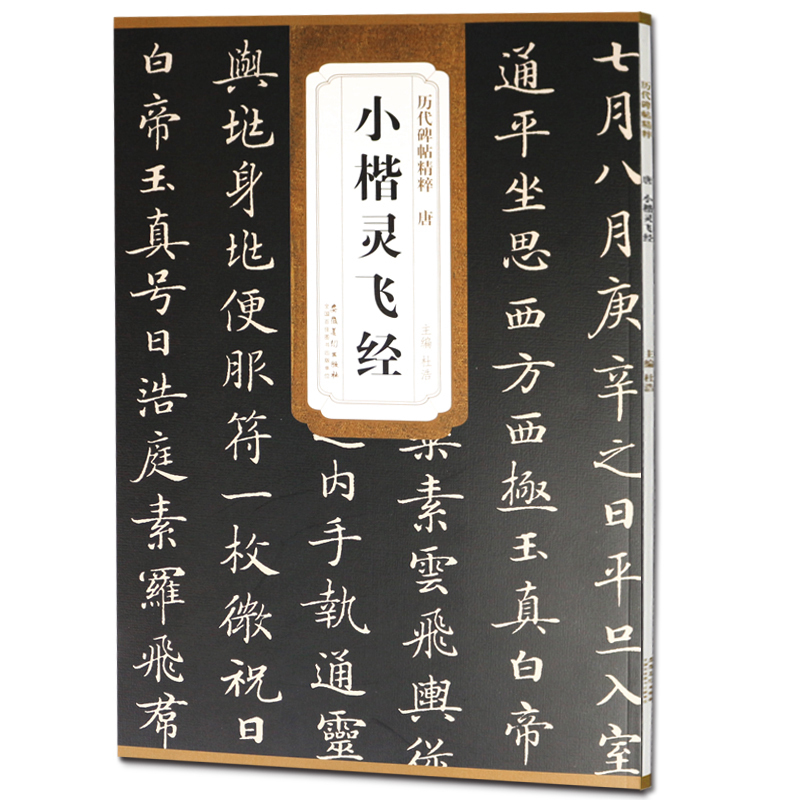 历代碑帖精粹 唐
小楷灵飞经
主编 杜浩
安徽美术出版社
全国百佳图书出版单位
七月八月庚辛之日平旦入室
通平坐思西方西極玉真白帝
素雲飛輿從
内手執通靈
與垗身垗便服符一枚微祝曰
白帝玉真号曰浩庭素羅飛帬
历代碑帖精粹 唐 小楷灵飞经 主编 杜浩